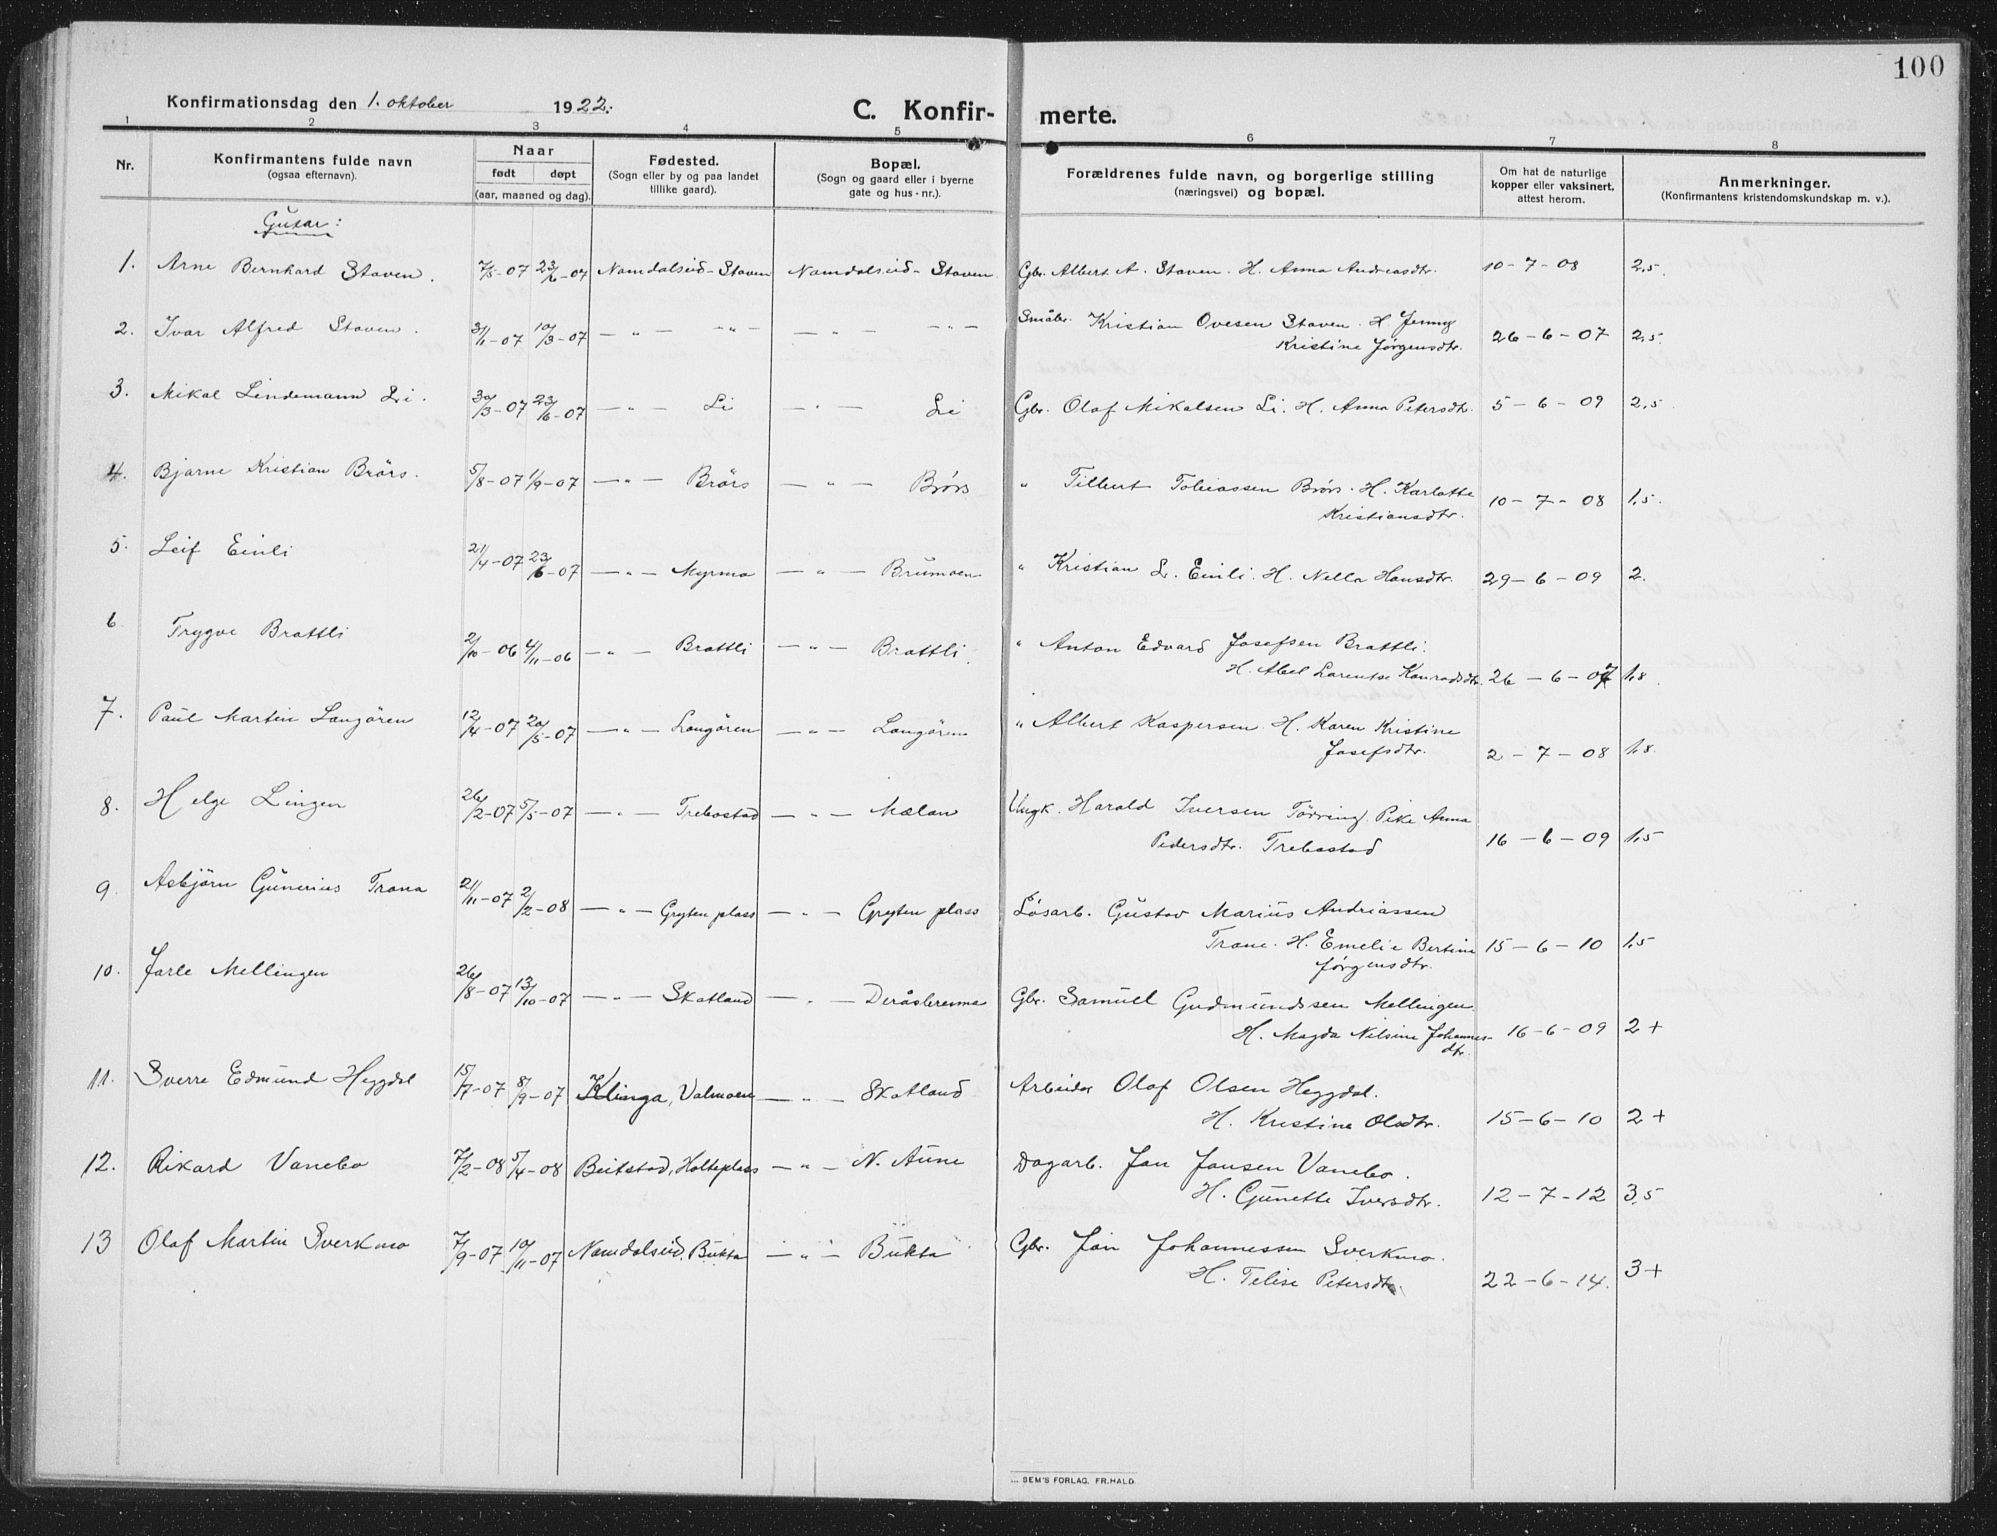 100
Konfirmationsdag den 1. oktober 1922.
C. Konfir- merte.
1 2 3 4 5 6 7 8
Nr.
Konfirmantens fulde navn
(ogsaa efternavn).
Naar
født døpt
(aar, maaned og dag).
Fødested.
(Sogn eller by og paa landet
tillike gaard).
Bopæl.
(Sogn og gaard eller i byerne
gate og hus-nr.).
Forældrenes fulde navn, og borgerlige stilling
(næringsvei) og bopæl.
Om hat de naturlige
kopper eller vaksinert,
attest herom.
Anmerkninger.
(Konfirmantens kristendomskundskap m. v.).
Gutar:
1. Arne Bernhard Staven. 7/5-07 23/6-07 Namdalseid-Staven Namdalseid-Staven Gbr. Albert A. Staven. H. Anna Andreasdtr. 10-7-08 2,5.
2. Ivar Alfred Staven. 31/1-07 10/3-07 — " — — " — — " — — " — Småbr. Kristian Ovesen Staven. H. Jenny
Kristine Jørgensdtr. 26-6-07 2,5.
3. Mikal Lindemann Li. 30/3-07 23/6-07 — " — Li — " — Li Gbr. Olaf Mikalsen Li. H. Anna Petersdtr. 5-6-09 2,5
4. Bjarne Kristian Brörs. 5/8-07 1/9-07 — " — Brörs — " — Brørs " Tilbert Tobiassen Brørs. H. Karlotte
Kristiansdtr. 10-7-08 1,5.
5. Leif Einli 21/4-07 23/6-07 — " — Myrmo — " — Brumoen " Kristian L. Einli. H. Nella Hansdtr. 29-6-09 2.
6. Trygve Brattli 2/10-06 4/11-06 — " — Brattli — " — Brattli. " Anton Edvard Josefsen Brattli.
H. Abel Larentse Konradsdtr. 26-6-07 1,8.
7. Paul Martin Langören 12/4-07 20/5-07 — " — Langören — " — Langören " Albert Kaspersen. H. Karen Kristine
Josefsdtr. 2-7-08 1,8.
8. Helge Lingen 26/2-07 5/5-07 — " — Trebostad — " — Mælan Ungk. Harald Iversen Törring. Pike Anna
Pedersdtr. Trebostad 16-6-09 1,5
9. Asbjörn Gunerius Trana 21/11-07 2/2-08 — " — Gryten plass — " — Gryten plass Løsarb. Gustav Marius Andriassen
Trane. H. Emelie Bertine 15-6-10 1,5
Jørgensdtr.
10. Jarle Mellingen 26/8-07 13/10-07 — " — Skatland — " — Deråsbrenna Gbr. Samuel Gudmundssen Mellingen
H. Magda Nilsine Johannes- 16-6-09 2+
dtr.
11. Sverre Edmund Heggdal 15/7-07 8/9-07 Klinga, Valmoen — " — Skatland Arbeider Olaf Olsen Heggdal.
H. Kristine Olsdtr. 15-6-10 2+
12. Rikard Vanebo 7/2-08 5/4-08 Beitstad, Holteplass — " — N. Aune Dagarb. Jan Jansen Vanebo.
H. Gunette Iversdtr. 12-7-12 3,5
13 Olaf Martin Sverkmo 7/9-07 10/11-07 Namdalseid, Bukta — " — Bukta Gbr. Jan Johannessen Sverkmo.
H. Telise Petersdtr. 22-6-14. 3+
SEM'S FORLAG, FR.HALD